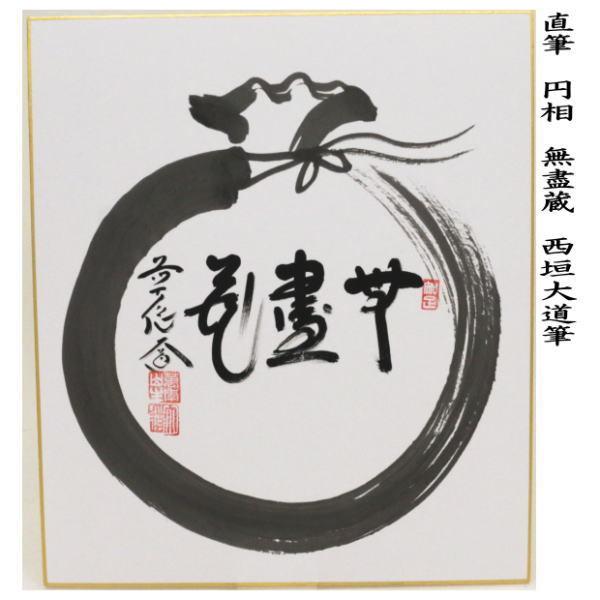 直筆 円相 無盡蔵 西垣大道筆
無盡蔵